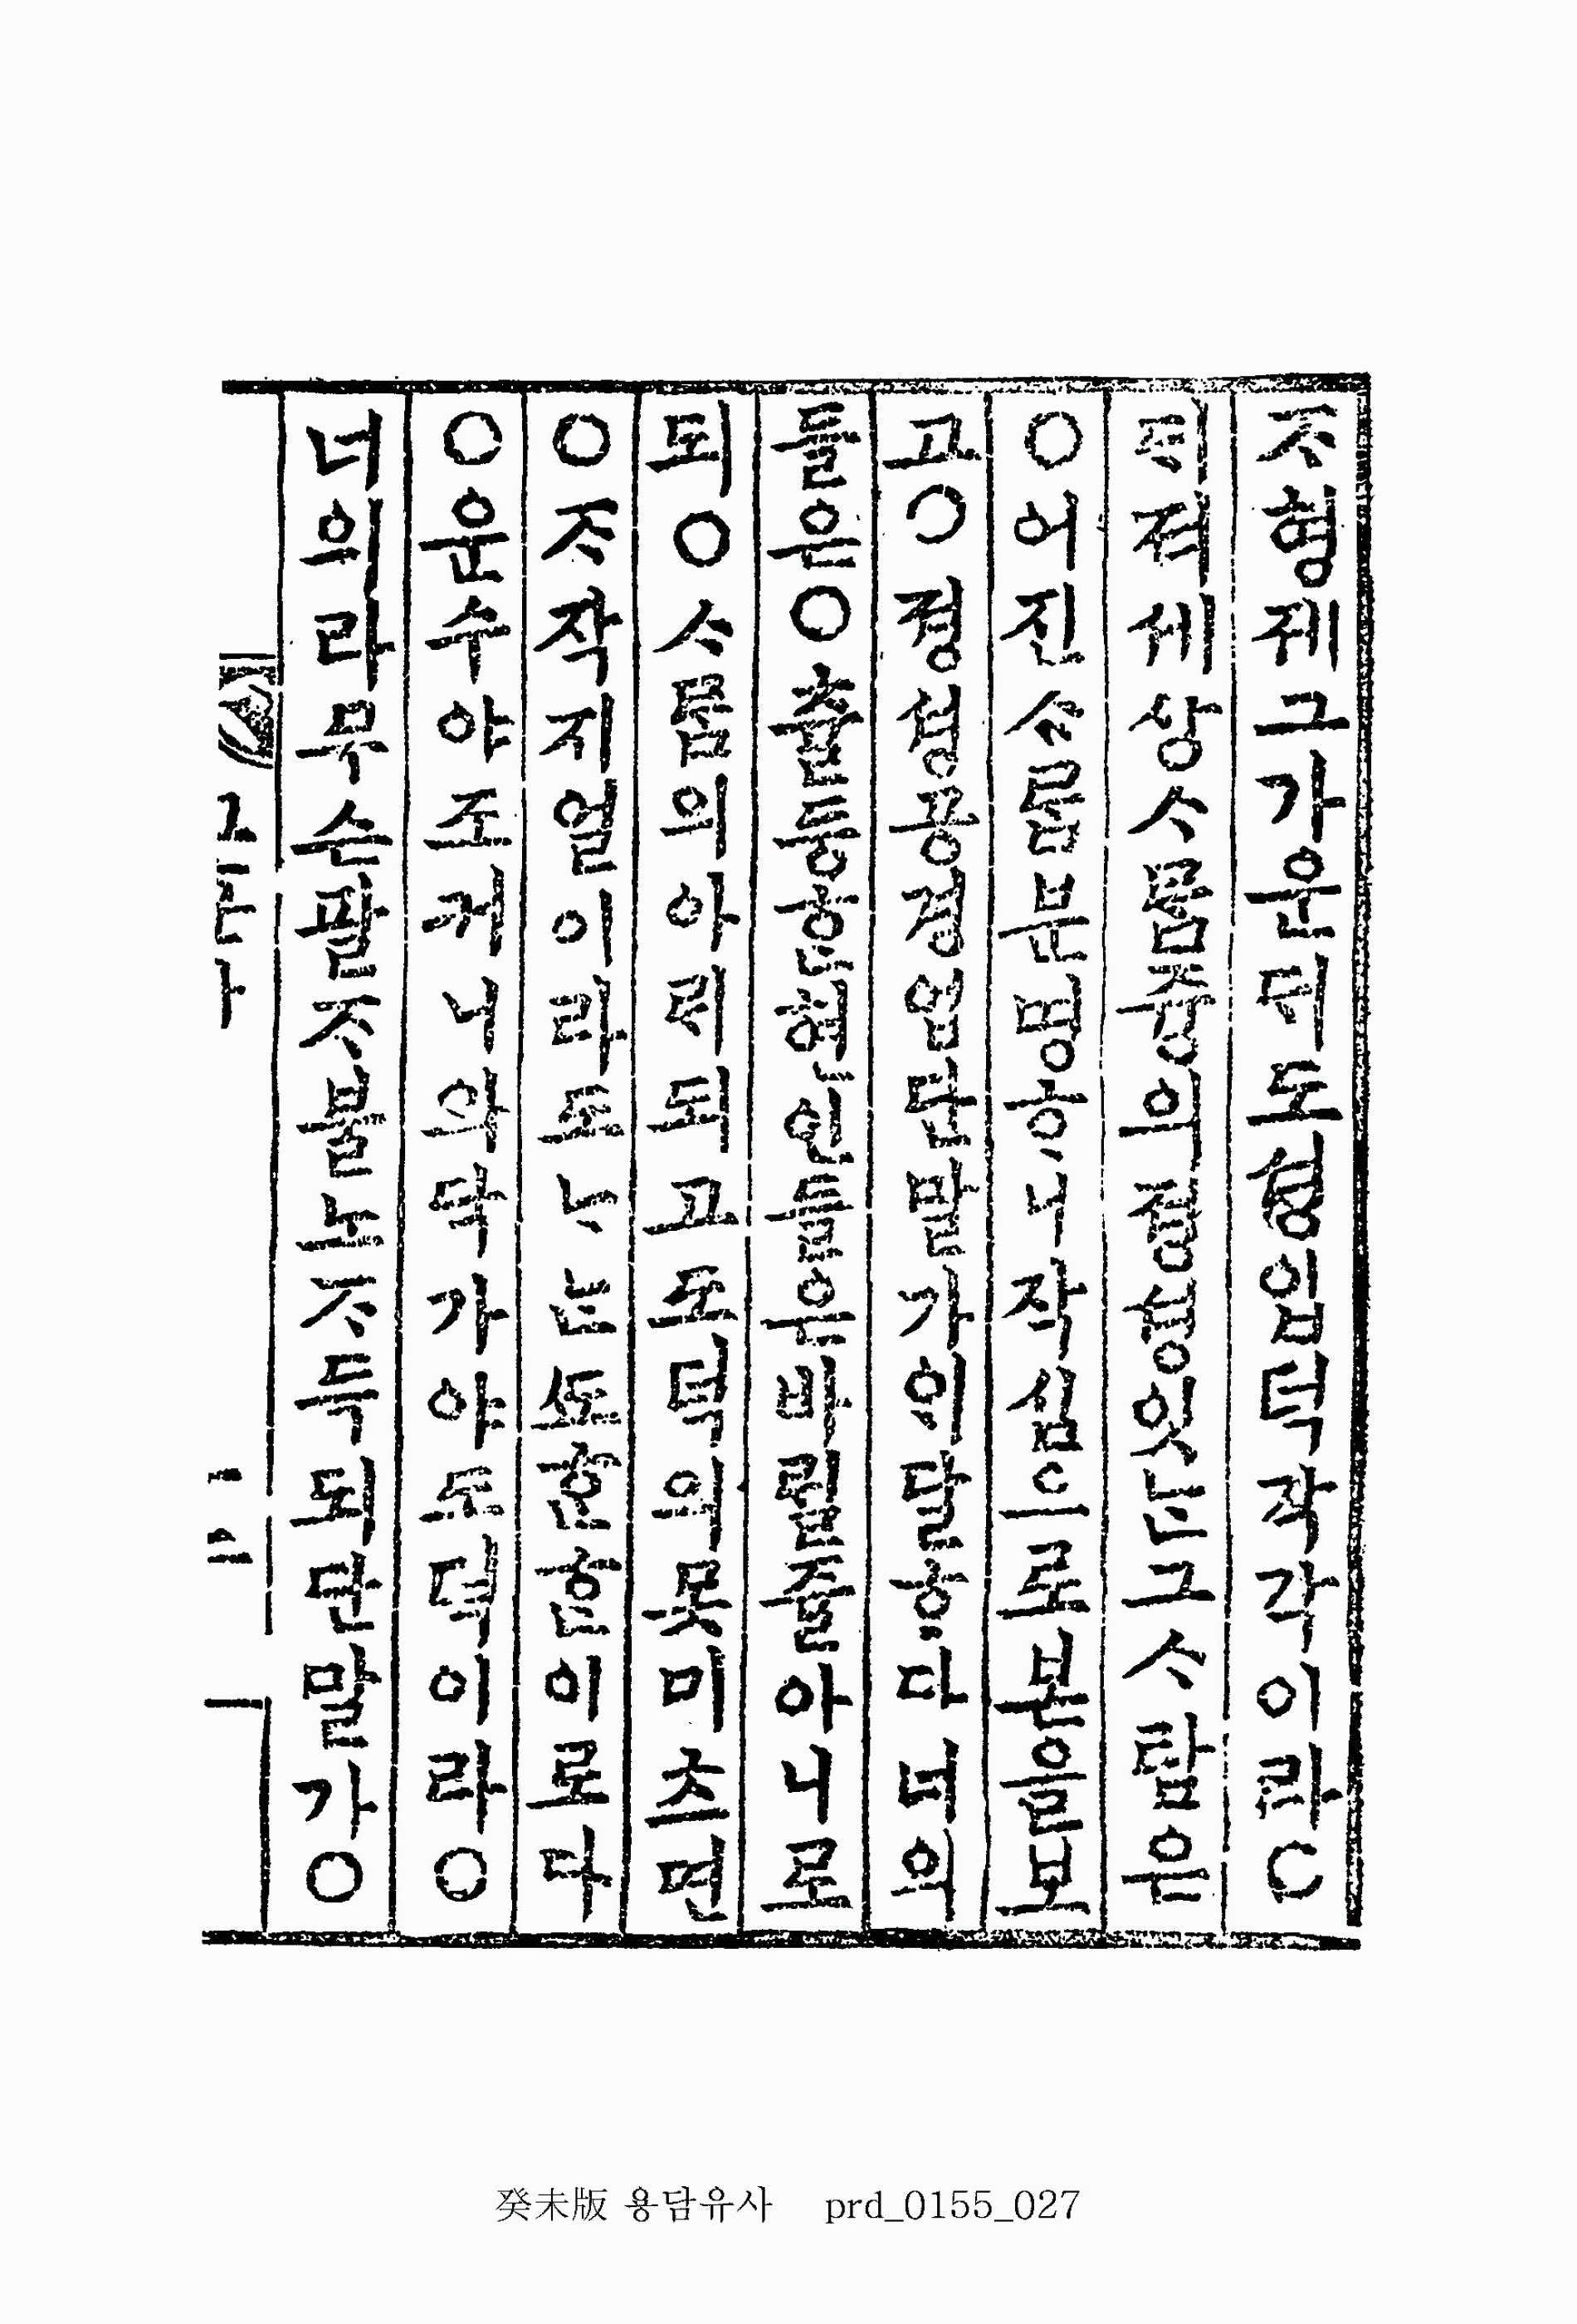 ᄌᆞ형졔그가운ᄃᆡ도셩입덕각각이라○
ᄃᆡ져셰상ᄉᆞᄅᆞᆷ즁의졍셩잇ᄂᆞᆫ그ᄉᆞ람은
○어진ᄉᆞᄅᆞᆷ분명ᄒᆞ니작심으로본을보
고○졍셩공경업단말가ᄋᆡ달ᄒᆞ다너의
들은○츌등ᄒᆞᆫ현인들은바ᄅᆡᆯ줄아니로
되○ᄉᆞᄅᆞᆷ의아ᄅᆡ되고도덕의못미츠면
○ᄌᆞ작지얼이라도ᄂᆞ는ᄯᅩᄒᆞᆫᄒᆞᆫ이로다
○운수야조커니와닥가야도덕이라○
너의라무슨팔ᄌᆞ불노ᄌᆞ득되단말가○
二
癸未版 용담유사 prd_0155_027